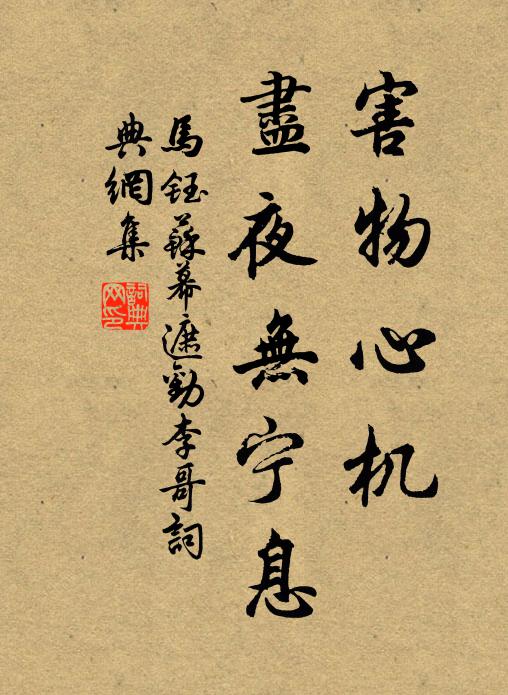 害物心机
盡夜無宁息
馬鈺蘇幕遮勸李哥詞
典網集
詞典
网印